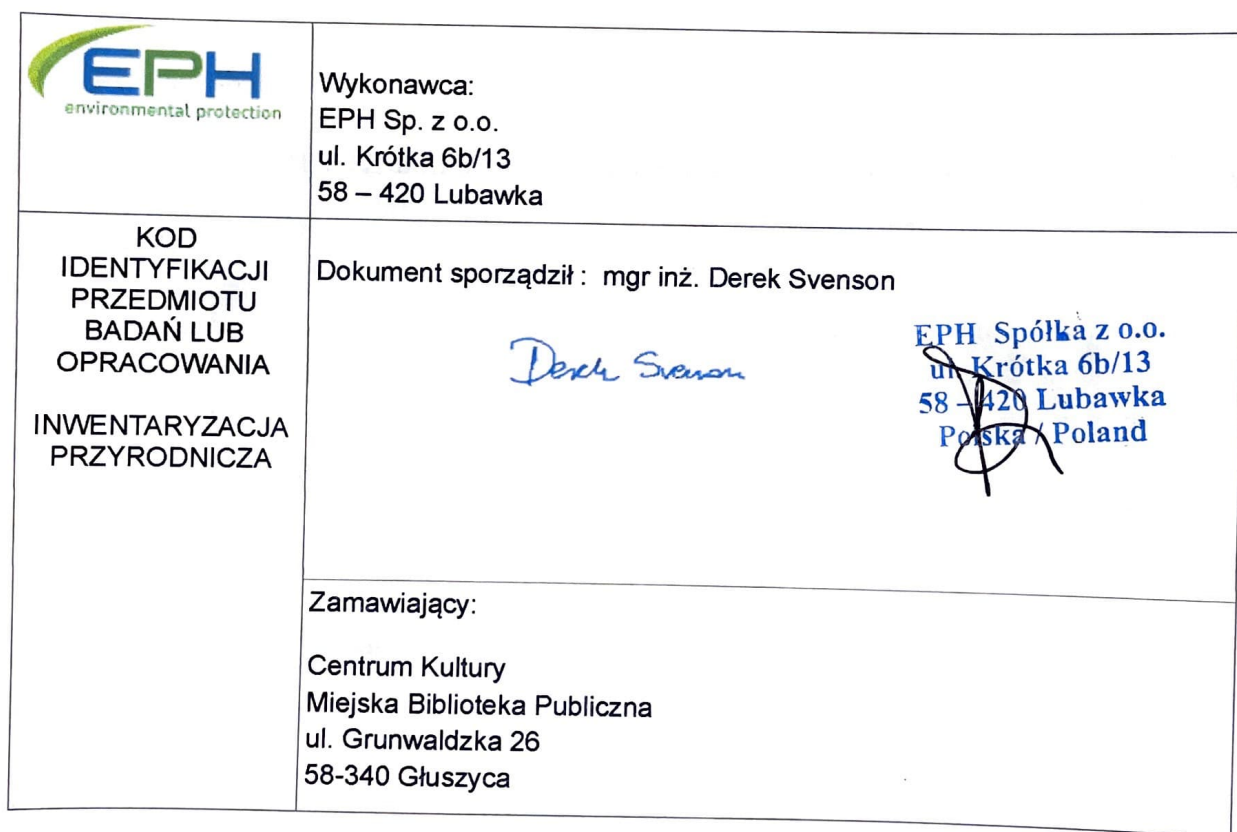 EPH
environmental protection
Wykonawca:
EPH Sp. z o.o.
ul. Krótka 6b/13
58 – 420 Lubawka
KOD
IDENTYFIKACJI
PRZEDMIOTU
BADAŃ LUB
OPRACOWANIA
INWENTARYZACJA
PRZYRODNICZA
Dokument sporządził : mgr inż. Derek Svenson
Derek Svenson
EPH Spółka z o.o.
ul. Krótka 6b/13
58 – 420 Lubawka
Polska / Poland
Zamawiający:
Centrum Kultury
Miejska Biblioteka Publiczna
ul. Grunwaldzka 26
58-340 Głuszyca